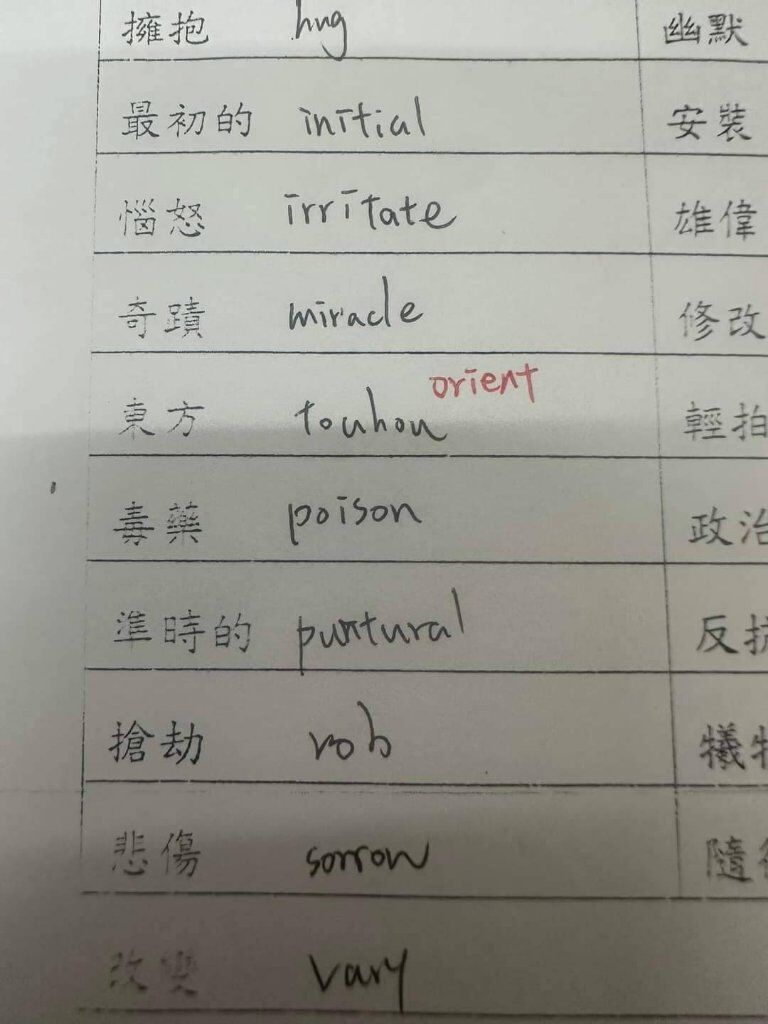 擁抱 hug 幽默
最初的 initial 安裝
惱怒 irritate 雄偉
奇蹟 miracle 修改
東方 touhou orient 輕拍
毒藥 poison 政治
準時的 puntural 反抗
搶劫 rob 犧牲
悲傷 sorrow 隨
改變 vary